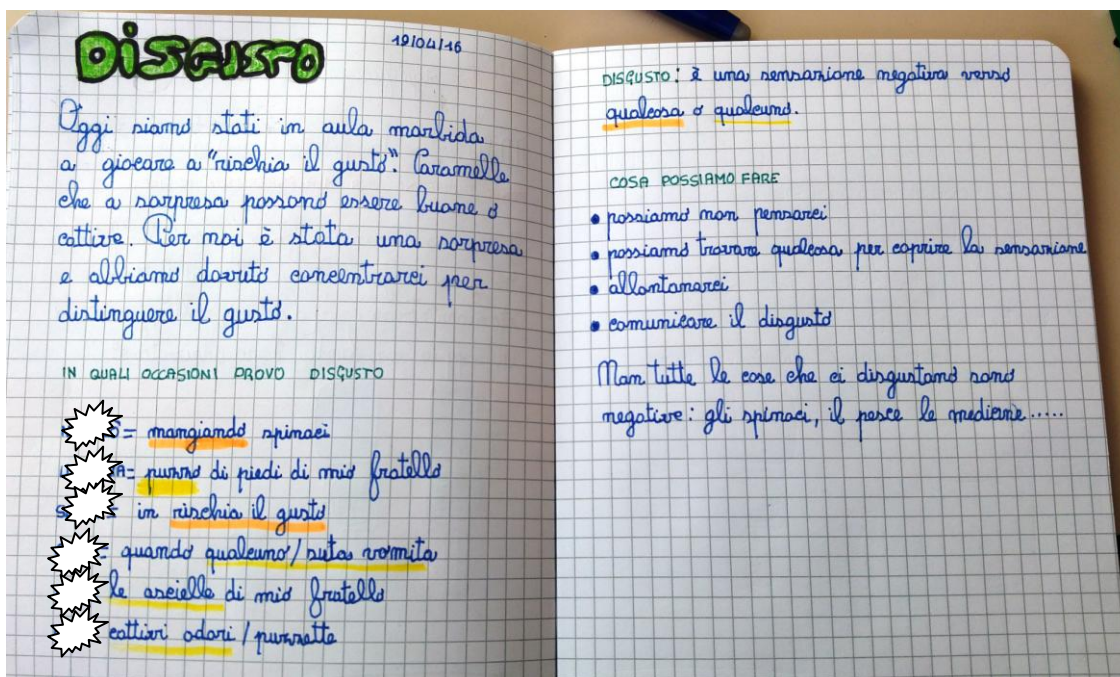 DISGUSTO
19/04/16
Oggi siamo stati in aula morbida
a giocare a "rischia il gusto". Caramelle
che a sorpresa possono essere buone o
cattive. Per noi è stata una sorpresa
e abbiamo dovuto concentrarci per
distinguere il gusto.
IN QUALI OCCASIONI PROVO DISGUSTO
= mangiando spinaci
A= puzza di piedi di mio fratello
S = in rischia il gusto
= quando qualcuno/ sputa vomita
le ascelle di mio fratello
cattivi odori / puzzette
DISGUSTO: è una sensazione negativa verso
qualcosa o qualcuno.
COSA POSSIAMO FARE
• possiamo non pensarci
• possiamo trovare qualcosa per coprire la sensazione
• allontanarci
• comunicare il disgusto
Non tutte le cose che ci disgustano sono
negative: gli spinaci, il pesce le medicine.....